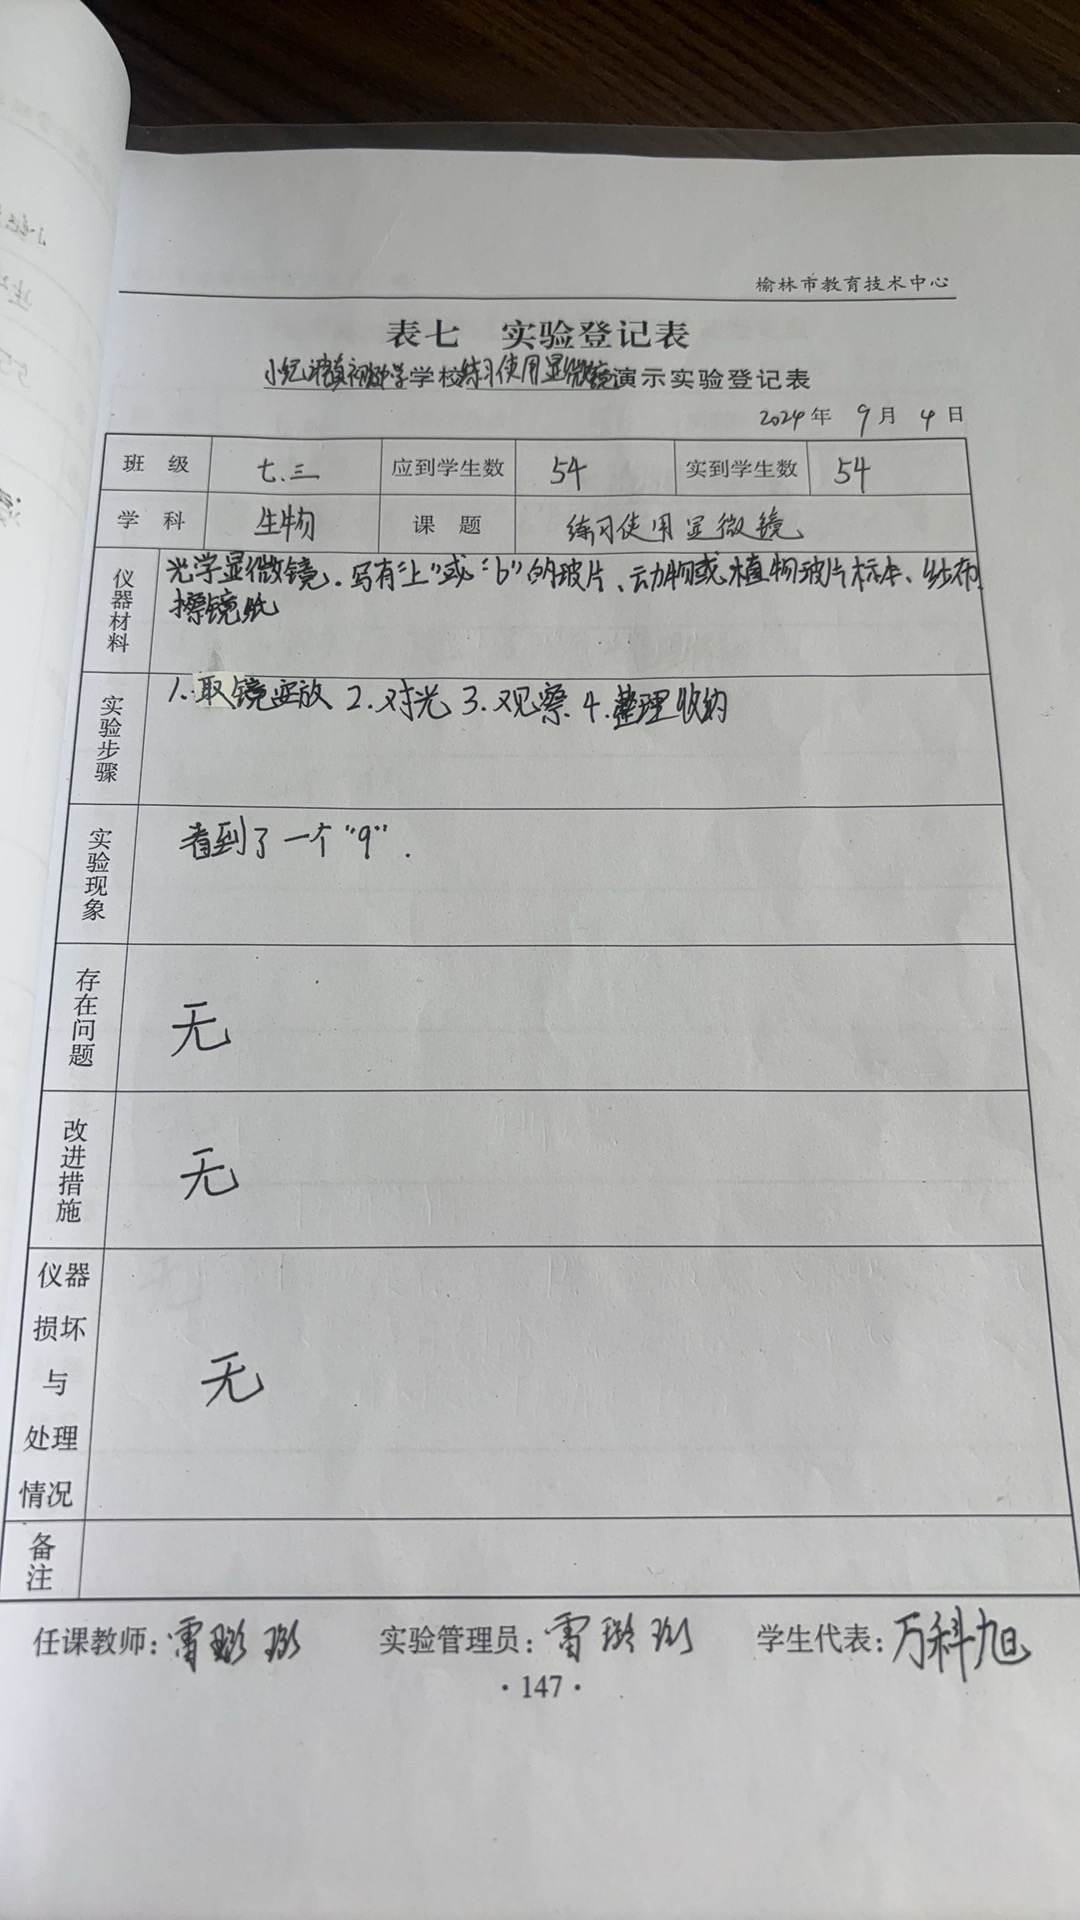 榆林市教育技术中心
表七 实验登记表
小纪汗镇初级中学学校练习使用显微镜演示实验登记表
2024年 9月 4日
班级 七.三 应到学生数 54 实到学生数 54
学科 生物 课题 练习使用显微镜
仪器材料 光学显微镜、写有“上”或“b”的玻片、动物或植物玻片标本、纱布、
擦镜纸
实验步骤 1.取镜安放 2.对光 3.观察 4.整理收纳
实验现象 看到了一个“9”.
存在问题 无
改进措施 无
仪器
损坏
与
处理
情况
无
备注
任课教师: 雷 实验管理员: 雷 学生代表: 万科旭
·147·